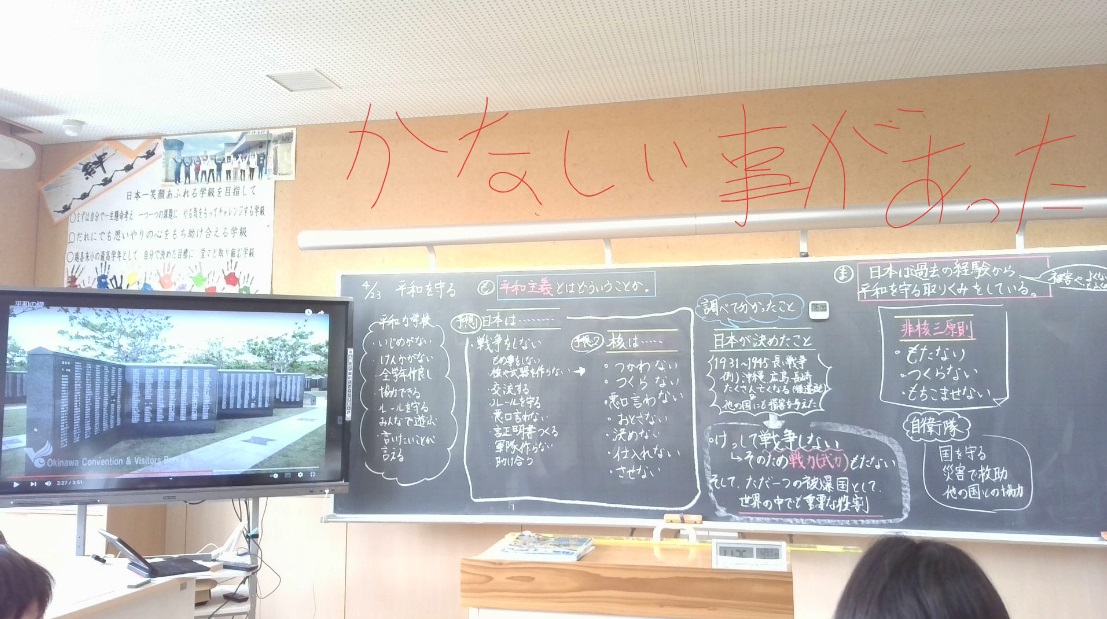 かなしい事があった
絆
日本一笑顔あふれる学級を目指して
〇まずは自分で一生懸命考え 一つ一つの課題に やる気をもってチャレンジする学級
〇だれにでも思いやりの心をもち助け合える学級
最高学年として 自分で決めた目標に 堂々と取り組む学級
平和の礎
Okinawa Convention & Visitors Bur
2:27 / 3:51
4/23 平和を守る
平和主義とはどういうことか。
平和な学校
・いじめがない
・けんかがない
全学年仲良し
協力できる
ルールを守る
みんなで遊ぶ
・言いたいことが
言える
予想1 日本は………
・戦争をしない
交流する
ルールを守る
悪口言わない
証明書つくる
軍隊作らない
助け合う
予想2 核は……
・つかわない
・つくらない
・悪口言わない
・おとさない
・決めない
・仕入れない
・させない
調べて分かったこと
日本が決めたこと
1931~1945 長い戦争
例)沖縄 広島 長崎
たくさん亡くなる
他の国にも損害を与えた
けっして戦争しない
↳そのため戦力(武力)もたない
そして、ただ一つの被爆国として、
世界の中でも重要な役割
ま 日本は過去の経験から、
平和を守る取りくみをしている。
非核三原則
・もたない
・つくらない
・もちこませない
自衛隊
国を守る
災害で救助
他の国との協力